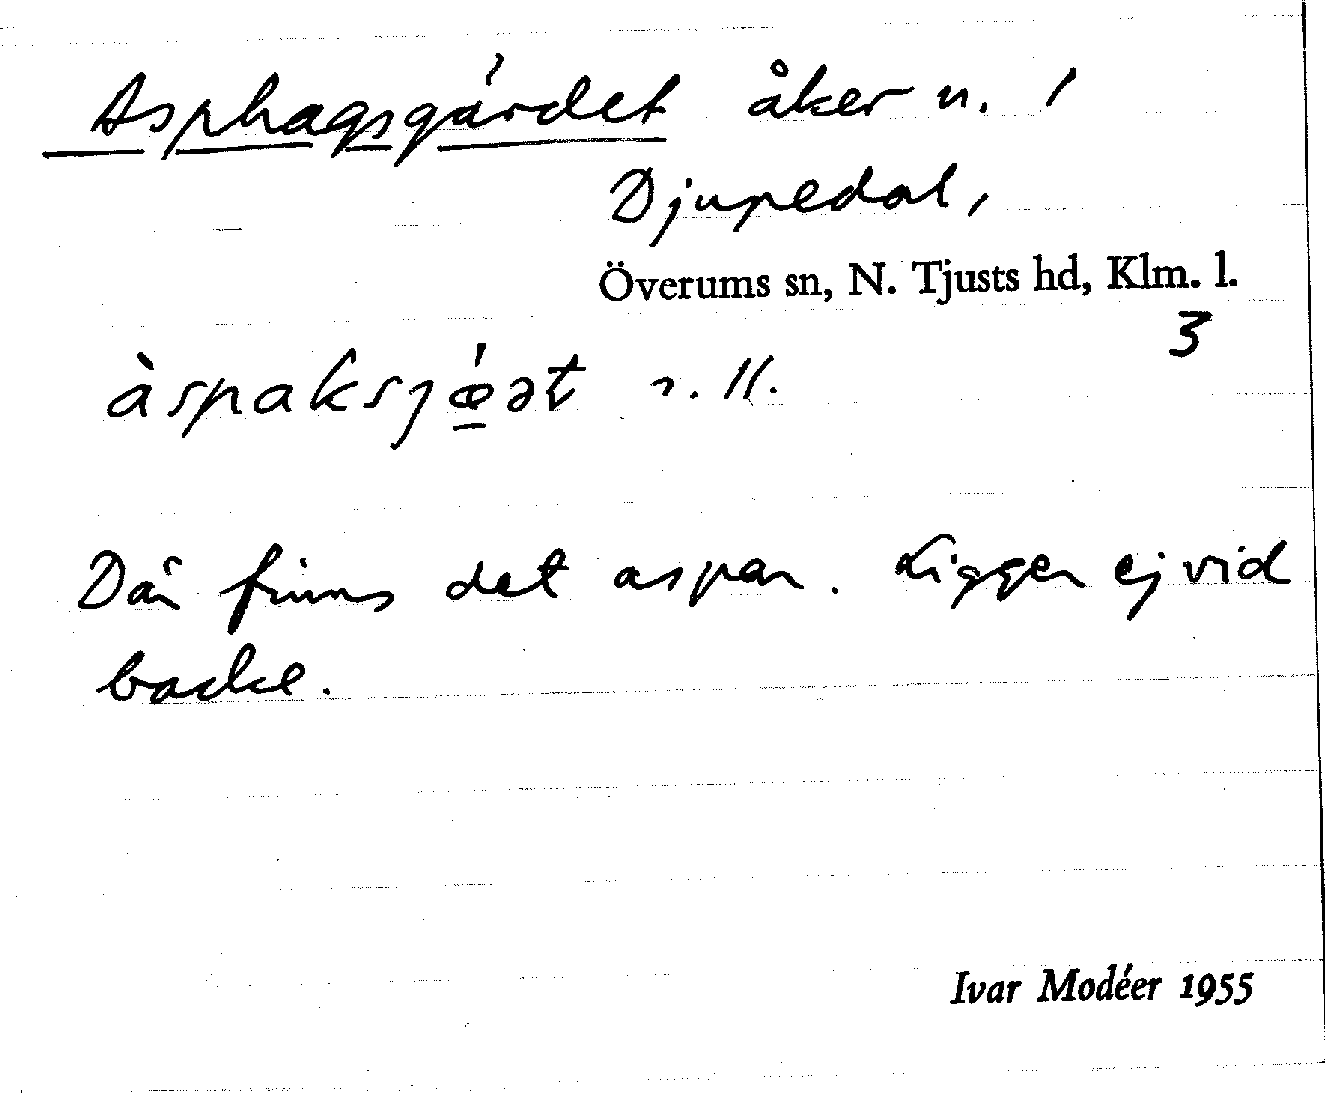 Asphagsgärdet åker n. 1
Djupedal,
Överums sn, N. Tjusts hd, Klm. l.
3
àspaksjǽət n. 11.
Där finns det aspar. Ligger ej vid
backe.
Ivar Modéer 1955